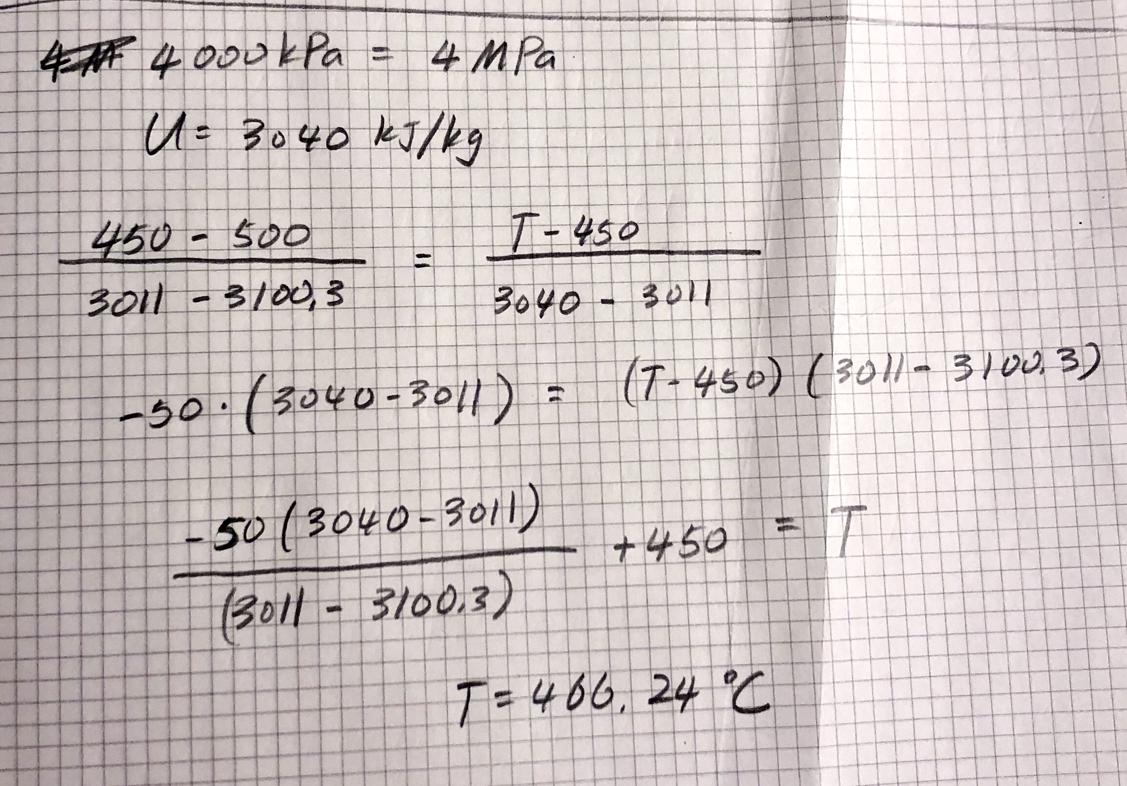 4000 kPa = 4 MPa
U = 3040 kJ/kg
450 - 500 / 3011 - 3100,3 = T - 450 / 3040 - 3011
-50 · (3040 - 3011) = (T - 450) (3011 - 3100.3)
-50 (3040 - 3011) / (3011 - 3100.3) + 450 = T
T = 466.24 °C